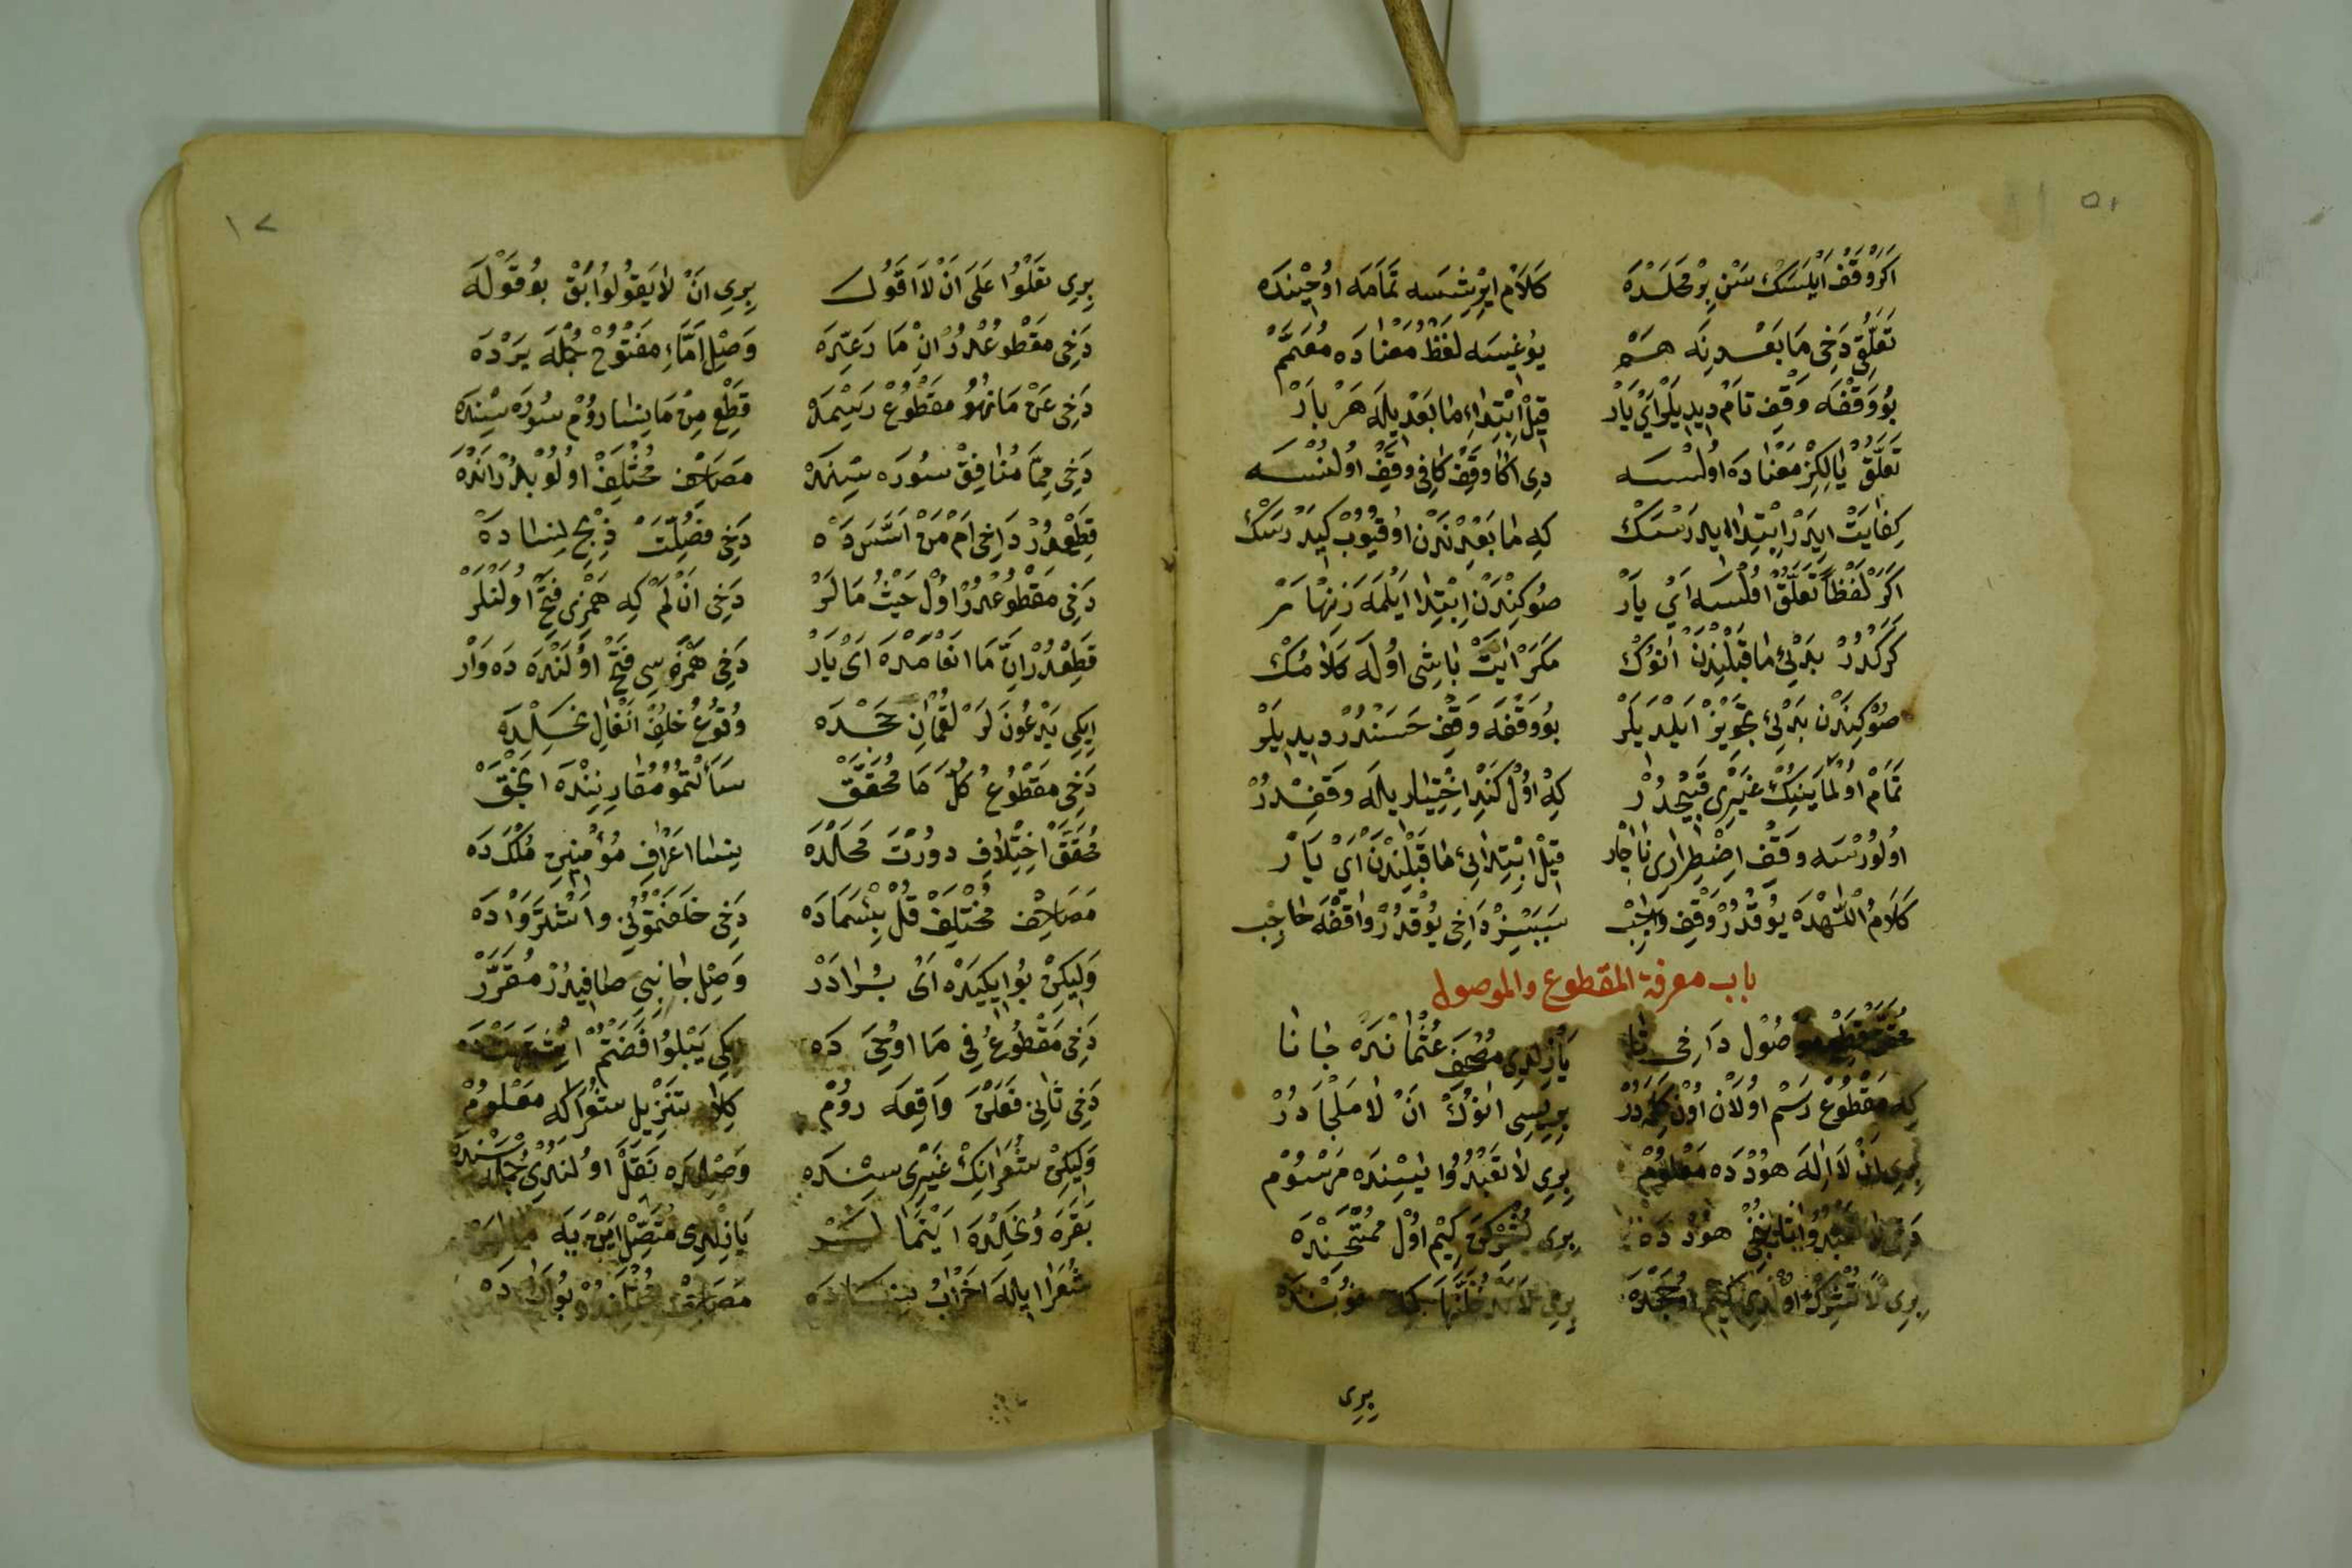 اكر وقف ايلسك سن بر محلده كلام ايرشسه تمامه اوجينده
تعلق دخی ما بعدنه هم يوغيسه لفظ معناده معمم
بو وقفه وقف تام ديديلر ای يار قيل ابتداء ما بعديله هر بار
تعلق يالكز معناده اولسه دی اكا وقف كافی وقف اولنسه
كفايت ايدر ابتدا ايدرسك كه ما بعدندن اوقيوب كيدرسك
اكر لفظا تعلق اولسه ای يار صوكندن ابتدا ايلمه زنهار
كركدر بدئی ما قبلندن انوك مكر ايت باشی اوله كلامك
صوكندن بدئی تجويز ايلديلر بو وقفه وقف حسندر ديديلر
تمام اولماينك غيری قبيحدر كه اول كند اختياريله وقفدر
اولورسه وقف اضطراری ناچار قيل ابتدائی ما قبلندن ای يار
كلام اللهده يوقدر وقف واجب سببسز داخی يوقدر واقفه حاجب
باب معرفة المقطوع والموصول
يازلدی مصحف عثمانده جانا
كه مقطوع رسم اولان اون كلمه در بريسی انوك ان لا ملجادر
بری ان لا اله هودده معلوم بری لا تعبدوا يسينده مرسوم
هودده بری يشركن كيم اول ممتحنده
بری لا تشرك
بری
١٢
بری تعلوا على ان لا اقول بری ان لا يقولوا ابق بو قوله
دخی مقطوعدر ان ما رعدّه وصل اماء مفتوح جمله يرده
دخی عن ما نهو مقطوع رسمده قطع من ما نسا روم سوره سنده
دخی مما منافق سوره سنده مصاحف مختلف اولوبدر انده
قطعدر داخی ام من اسسده دخی فصلت ذبح نساده
دخی مقطوعدر اول حيث مالر دخی ان لم كه همزی فتح اولنلر
قطعدر ان ما انعامده ای يار دخی همزه سی فتح اولنده ده وار
ايكی يدعون لر لقمان حجده وقوع خلف انفال نحلده
دخی مقطوع كل ما محقق سألتمو مقارننده الحق
محقق اختلاف دورت محلده نسا اعراف مؤمنين ملكده
مصاحف مختلف قل بئسماده دخی خلفتمونی واشتروا ده
وليكن بو ايكيده ای برادر وصل جانبی صافيدر مقرر
دخی مقطوع فی ما اوحی ده ايكی يبلوا فضتم اشتهت ده
دخی ثانی فعلن واقعه روم كلا تنزيل شعرا كه معلوم
وليكن شعرانك غيری سنده وصلده نقل اولندی جمله سنده
بقره و نحلده اينما يازلدی متصل
شعرا ايله احزاب نساده مصاحف مختلفدر بوراده